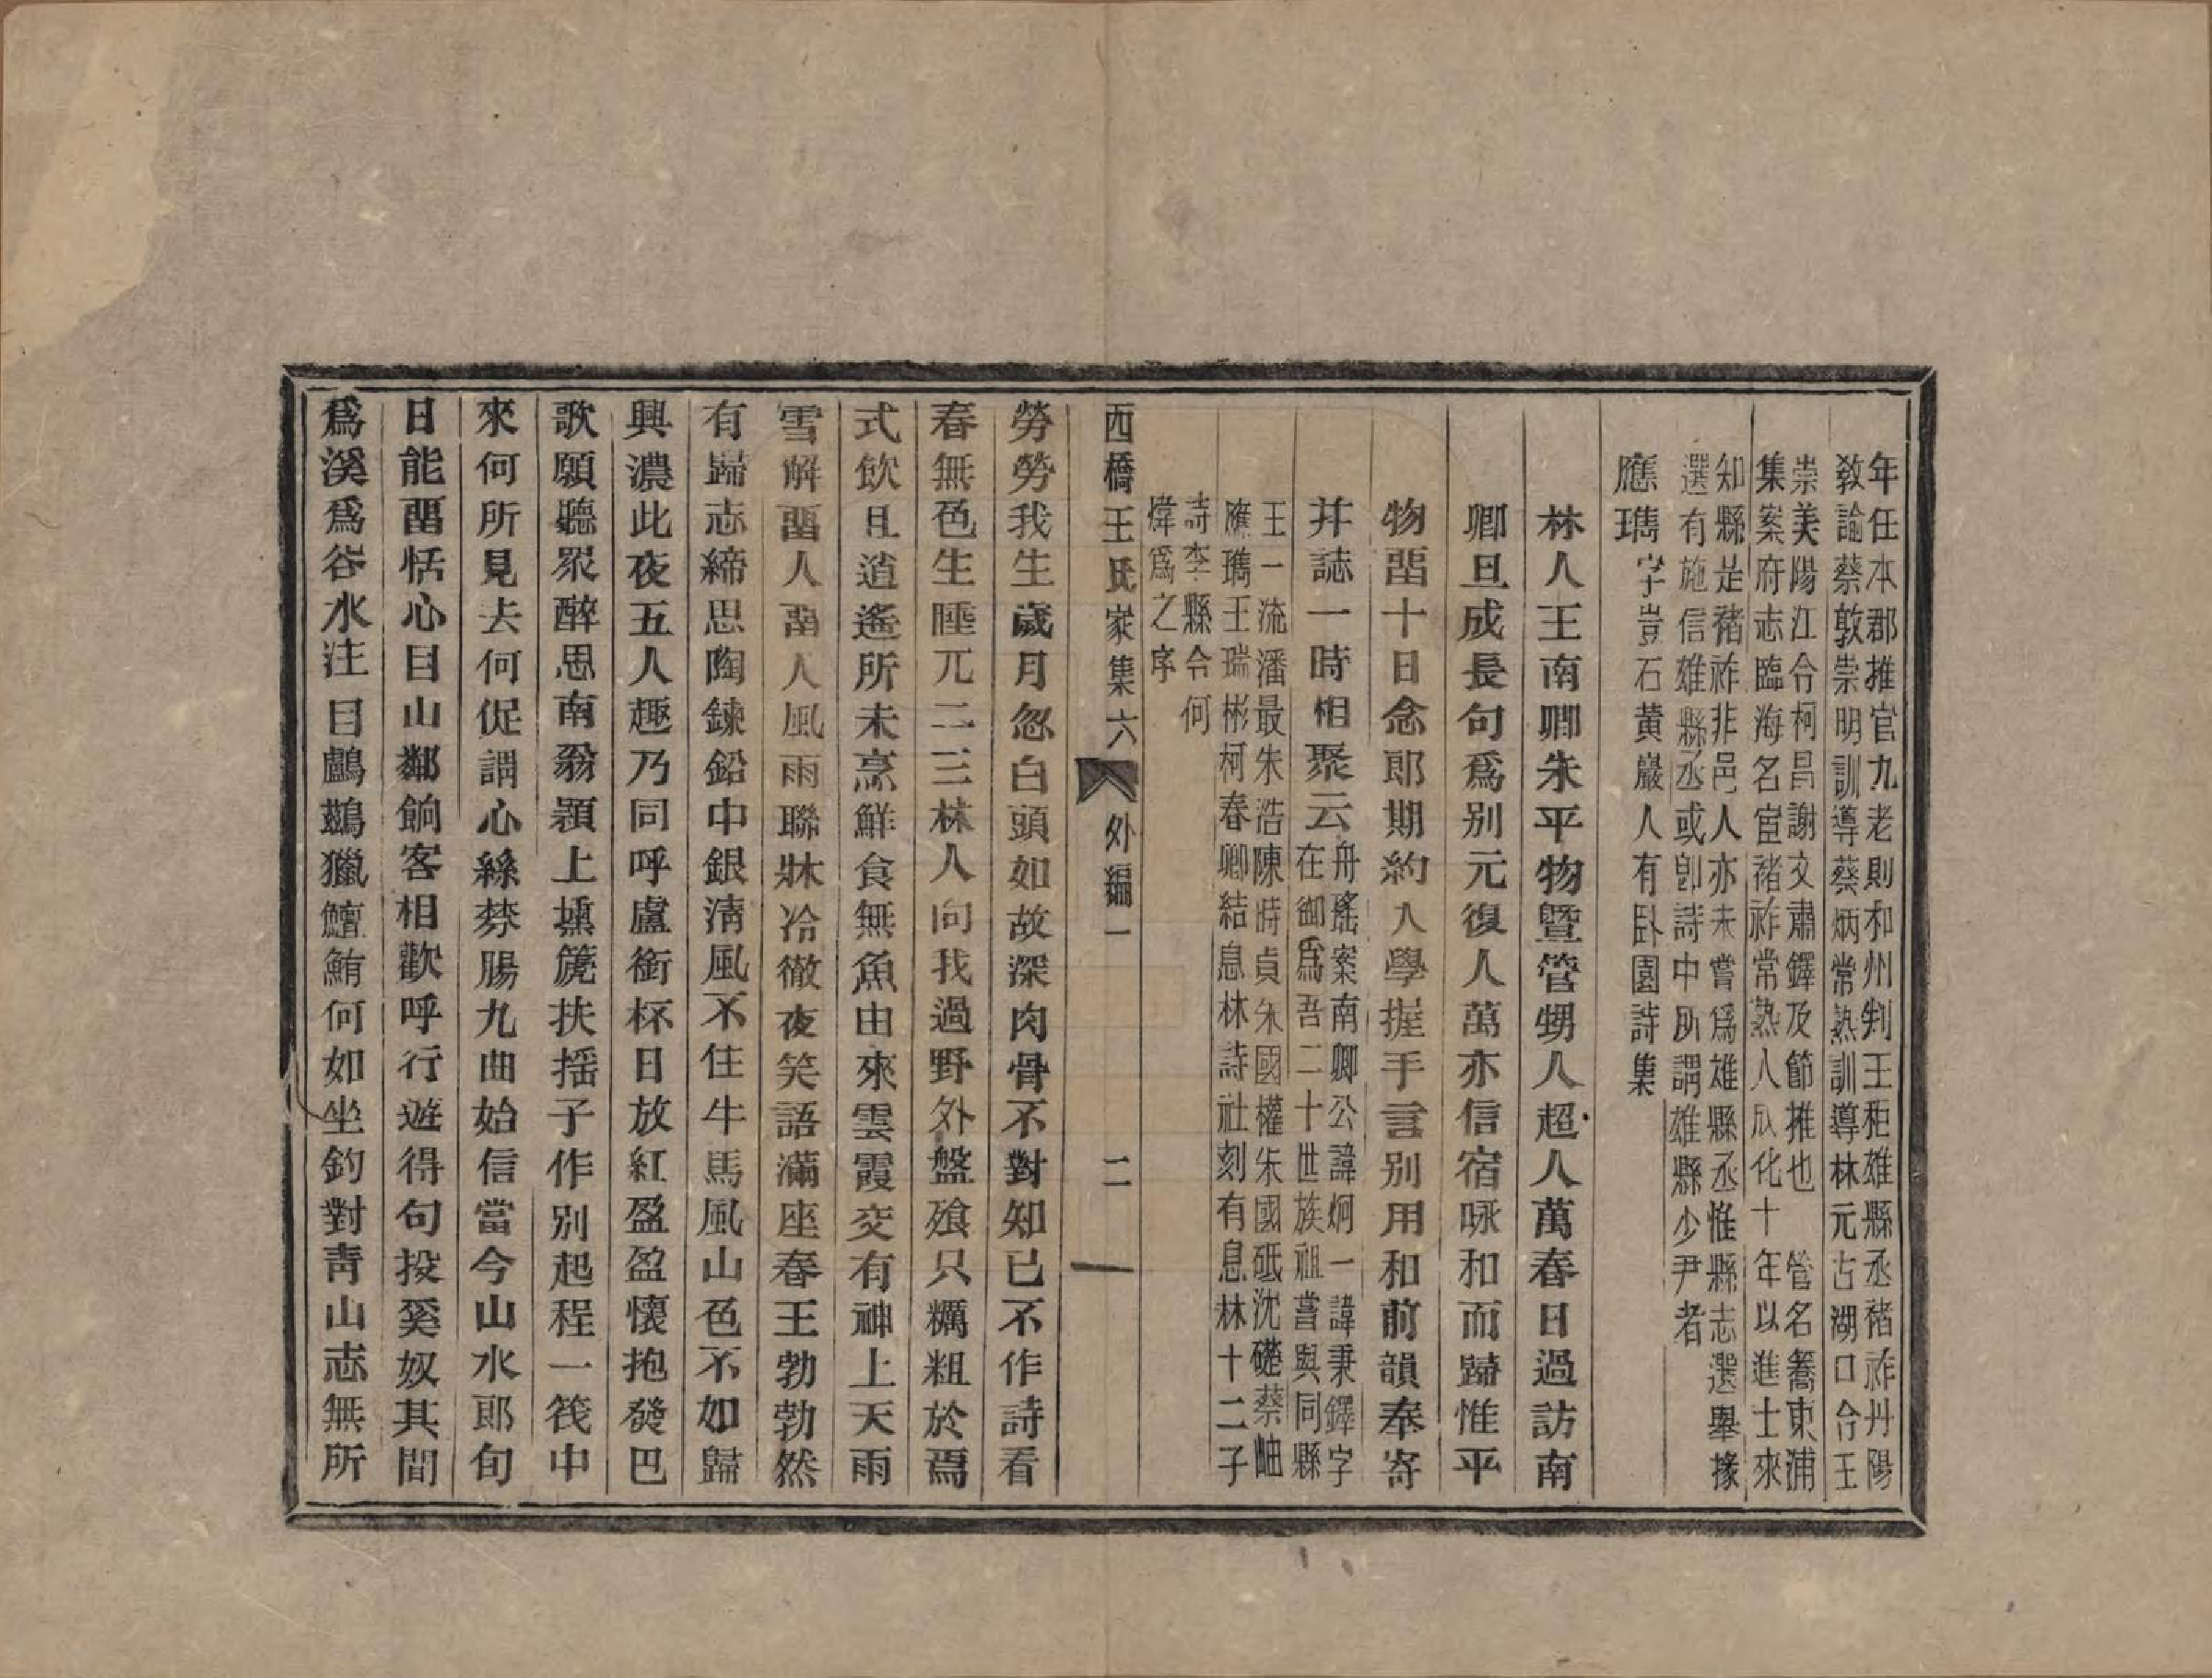 年任本郡推官九老則和州判王秬雄縣丞豬祚丹陽
敎諭蔡敦崇明訓導蔡炳常熟訓導林元古湖口令王
崇美陽江令柯昌謝文肅鐸及節推也 管名籌東浦
集案府志臨海名宦褚祚常熟人成化十年以進士來
知縣是褚祚非邑人亦未嘗爲雄縣丞惟縣志選舉掾
選有施信雄縣丞或卽詩中所謂雄縣少尹者
應璹字豈石黃巖人有卧園詩集
林人王南卿朱平物暨管甥人超人萬春日過訪南
卿旦成長句爲別元復人萬亦信宿咏和而歸惟平
物畱十日念郎期約入學握手言別用和前韻奉寄
幷誌一時相聚云舟瑤案南卿公諱炯一諱秉鐸字
在御爲吾二十世族祖嘗與同縣
王一流潘最朱浩陳時貞朱國權朱國砥沈礎蔡岫
應璹王瑞彬柯春卿結息林詩社刻有息林十二子
詩李縣令何
煒爲之序
西橋王氏家集六 外編一 二
勞勞我生歲月忽白頭如故深肉骨不對知已不作詩看
春無色生睡兀二三林人向我過野外盤飱只糲粗於焉
式飲且逍遙所未烹鮮食無魚由來雲霞交有神上天雨
雪解畱人畱人風雨聯牀冷徹夜笑語滿座春王勃勃然
有歸志締思陶鍊鉛中銀淸風不住牛馬風山色不如歸
興濃此夜五人趣乃同呼盧銜杯日放紅盈盈懷抱發巴
歌願聽眾醉思南翁顥上壎篪扶摇子作別起程一筏中
來何所見去何促謂心絲棼腸九曲始信當今山水郎旬
日能畱恬心目山鄰餉客相歡呼行遊得句投奚奴其間
爲溪爲谷水注目鸕鷀獵鱣鮪何如坐釣對靑山志無所